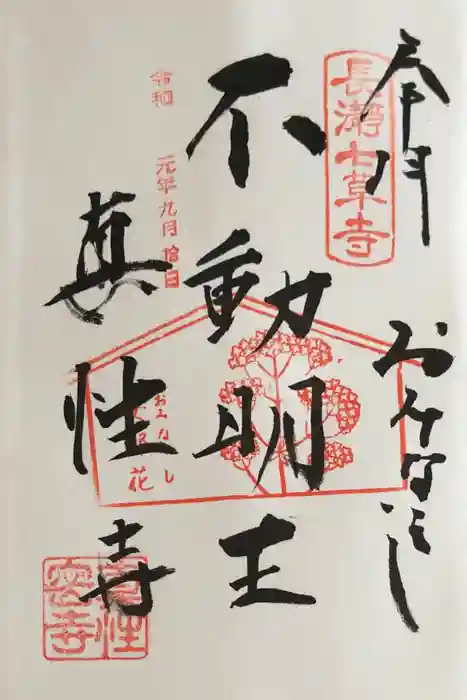 奉拝
おみなえし
長瀞七草寺
不動明王
令和 元年九月拾日
真性寺
おみなえし
花